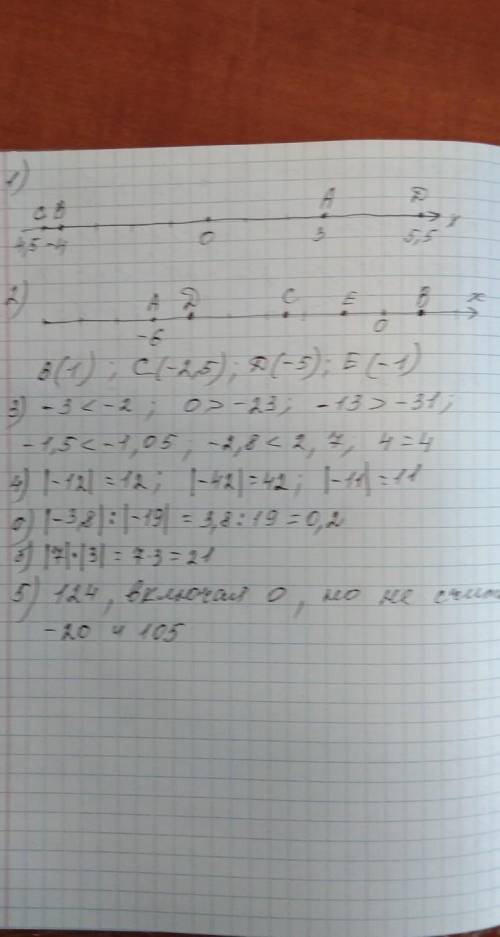 1)
C B A D
4,5 -4 0 3 5,5 x
2)
A D C E B x
-6 0
B(1) ; C(-2,5); D(-5); E(-1)
3) -3 < -2 ; 0 > -23; -13 > -31;
-1,5 < -1,05 ; -2,8 < 2,7; 4 = 4
4) |-12| = 12; |-42| = 42; |-11| = 11
|-3,8| : |-19| = 3,8 : 19 = 0,2
|7|·|3| = 7·3 = 21
5) 124, включая 0, но не счит
-20 и 105